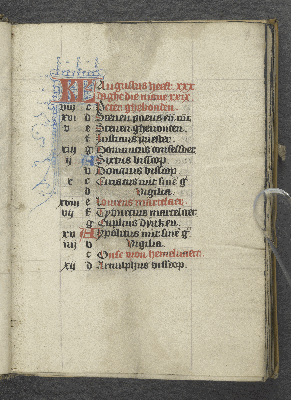 KL Augustus heeft xxx
daghe die mane xxix
viii c Peter ghebonden.
xvi d Steven paeus en̄ mr̄
v e Steven ghevonden.
f Justinus priester.
xiii g Dominicus confessoer
ii A Sixtus bisscop.
b Donatus bisscop.
x c Ciriacus mit sine g
d Vigilia.
xviii e Laurens martelaer.
vii f Tyburcius martelaer.
g Euplius dyaken.
xv A Ypolitus mit sine g
iiii b Vigilia.
c Onse vrou hemelvaert.
xii d Arnulphus bisscop.